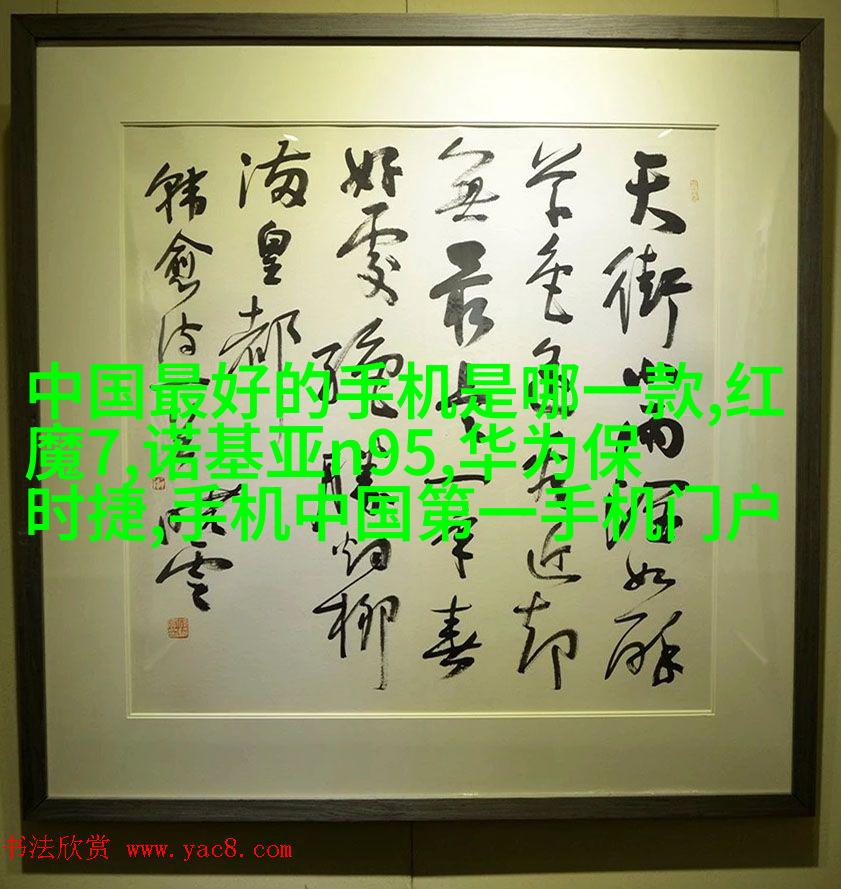 天街小雨潤如酥
草色遥看近却
無最是一年春
好處絕勝烟柳
滿皇都
韓愈诗
中国最好的手机是哪一款,红
魔7,诺基亚n95,华为保
时捷,手机中国第一手机门户
书法欣赏 www.yac8.com